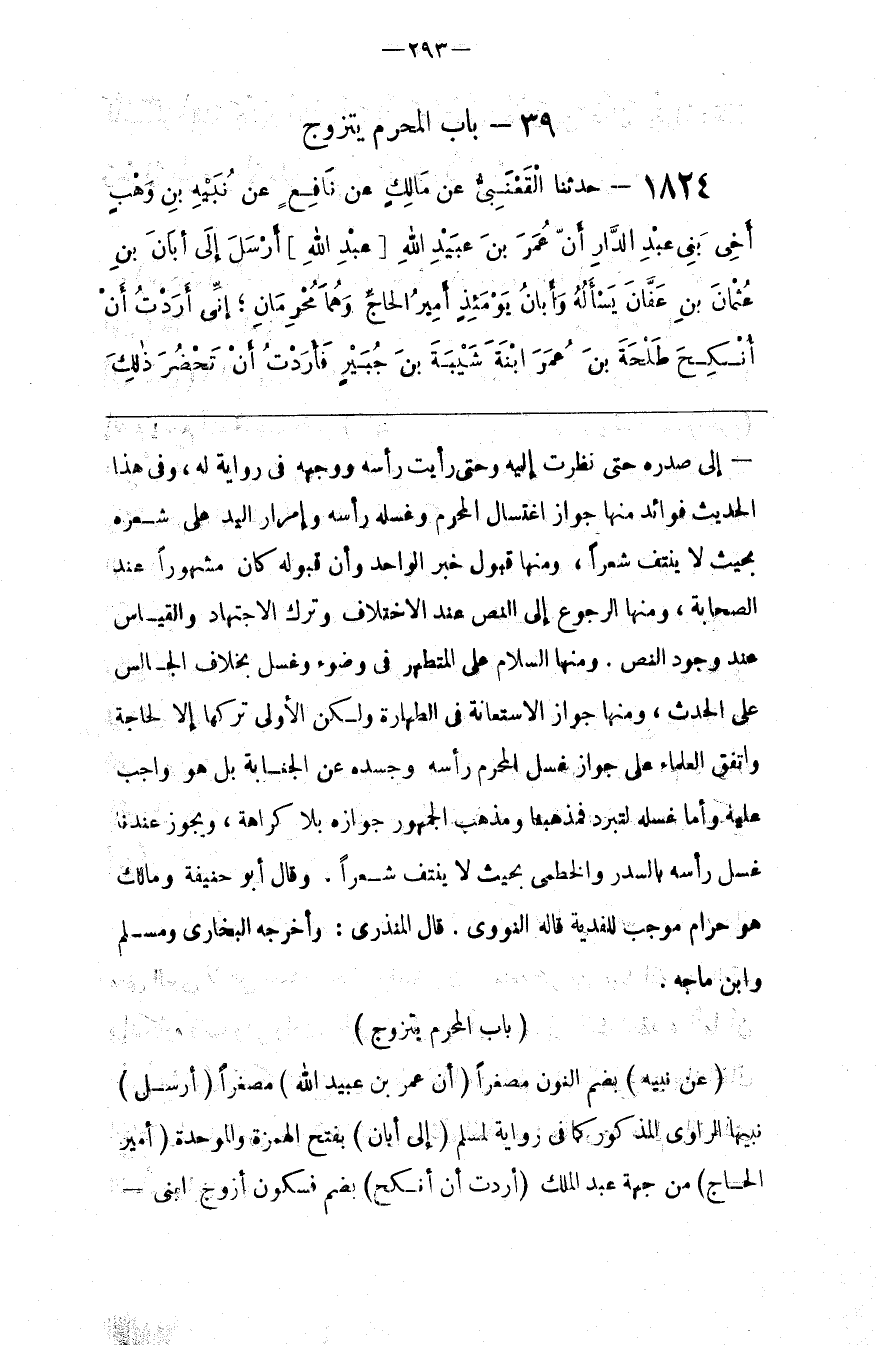 —٢٩٣—
٣٩ — باب المحرم يتزوج
١٨٢٤ — حدثنا الْقَعْنَبِىُّ عن مَالِكٍ عن نَافِعٍ عن نُبَيْهِ بنِ وَهْبٍ
أَخِى بَنِى عبْدِ الدَّارِ أَنّ عُمَرَ بنَ عبَيْدِ اللهِ [ عبْدِ اللهِ ] أَرْسَلَ إِلَى أبَانَ بنِ
عُثْمانَ بنِ عَفَّانَ يَسْأَلُهُ وَأَبانُ يَوْمَئِذٍ أَمِيرُ الحَاجِّ وَهُمَا مُحْرِمَانِ ؛ إِنِّى أَرَدْتُ أَنْ
أُنْكِحَ طَلْحَةَ بنَ عُمَرَ ابْنَةَ شَيْبَةَ بنَ جُبَيْرٍ فَأَرَدْتُ أَنْ تَحْضُرَ ذٰلِكَ
— إلى صدره حتى نظرت إليه وحتى رأيت رأسه ووجهه فى رواية له ، وفى هذا
الحديث فوائد منها جواز اغتسال المحرم وغسله رأسه وإمرار اليد على شعره
بحيث لا ينتف شعراً ، ومنها قبول خبر الواحد وأن قبوله كان مشهوراً عند
الصحابة ، ومنها الرجوع إلى النص عند الاختلاف وترك الاجتهاد والقياس
عند وجود النص . ومنها السلام على المتطهر فى وضوء وغسل بخلاف الجالس
على الحدث ، ومنها جواز الاستعانة فى الطهارة ولكن الأولى تركها إلا لحاجة
واتفق العلماء على جواز غسل المحرم رأسه وجسده عن الجنابة بل هو واجب
عليه وأما غسله لتبرد فمذهبنا ومذهب الجمهور جوازه بلا كراهة ، ويجوز عندنا
غسل رأسه بالسدر والخطمى بحيث لا ينتف شعراً . وقال أبو حنيفة ومالك
هو حرام موجب للفدية قاله النووى . قال المنذرى : وأخرجه البخارى ومسلم
وابن ماجه .
( باب المحرم يتزوج )
( عن نبيه ) بضم النون مصغراً ( أن عمر بن عبيد الله ) مصغراً ( أرسل )
نبيها الراوى المذكور كما فى رواية لمسلم ( إلى أبان ) بفتح الهمزة والموحدة ( أمير
الحاج ) من جهة عبد الملك ( أردت أن أنكح ) بضم فسكون أزوج ابنى —